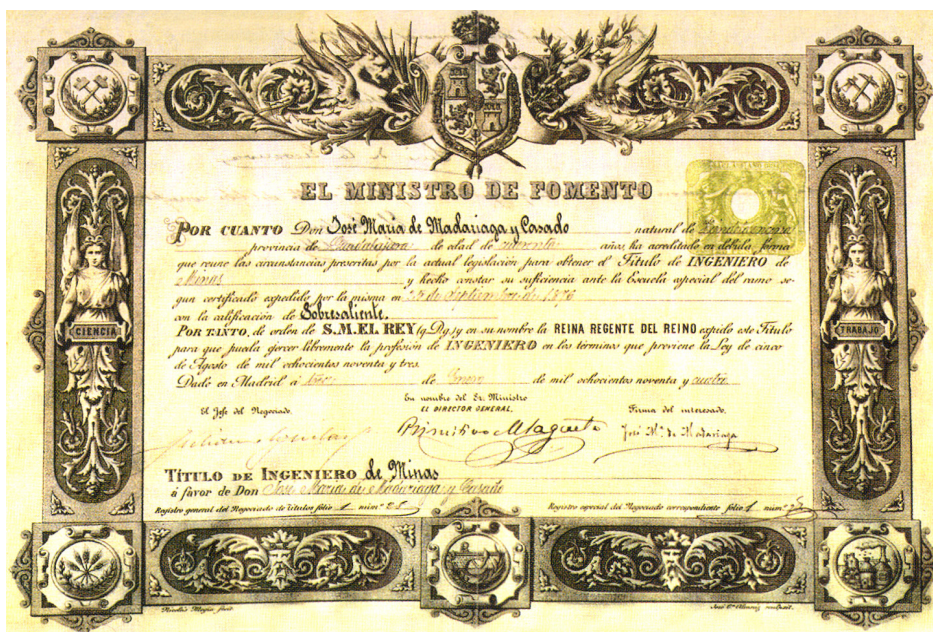 EL MINISTRO DE FOMENTO
POR CUANTO Don José Maria de Madariaga y Casado natural de
provincia de Guadalajara de edad de cuarenta años, ha acreditado en debida forma
que reune las circunstancias prescritas por la actual legislación para obtener el Título de INGENIERO de
Minas y hecho constar su suficiencia ante la Escuela especial del ramo se-
gun certificado expedido por la misma en de Septiembre de 1876
con la calificación de Sobresaliente.
POR TANTO, de orden de S.M. EL REY (q.D.g.) y en su nombre la REINA REGENTE DEL REINO expido este Título
para que pueda ejercer libremente la profesión de INGENIERO en los términos que previene la Ley de cinco
de Agosto de mil ochocientos noventa y tres.
Dado en Madrid á de Enero de mil ochocientos noventa y cuatro
En nombre del Sr. Ministro
El Jefe del Negociado. EL DIRECTOR GENERAL, Firma del interesado.
Primitivo José Mª de Madariaga
TÍTULO DE INGENIERO de Minas
á favor de Don José Maria de Madariaga y Casado
Registro general del Negociado de títulos folio 1 núm.º Registro especial del Negociado correspondiente folio 1 núm.º
CIENCIA
TRABAJO